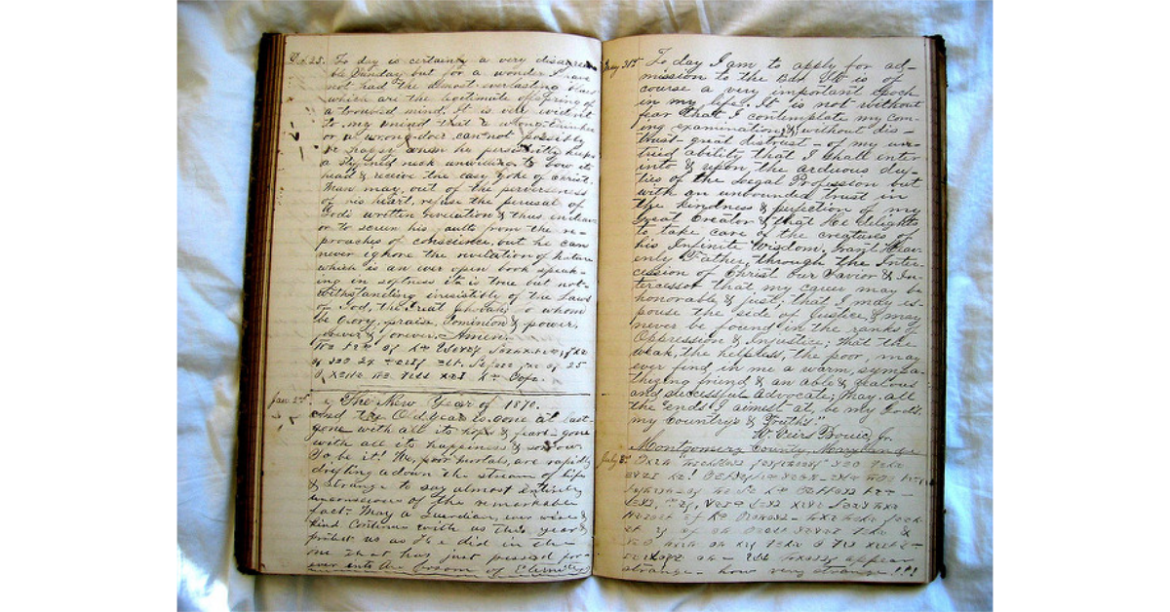 Oct. 25. To day is certainly a very disagreea-
ble Sunday but for a wonder I have
not had the almost everlasting blues
which are the legitimate offspring of
a troubled mind. It is very evident
to my mind that a wrong-thinker
or a wrong-doer can not possibly
be happy when he persistently keeps
a stiffened neck unwilling to bow its
head & receive the easy yoke of Christ.
Man may, out of the perverseness
of his heart, refuse the perusal of
God's written revelation & thus endeav-
or to screen his faults from the re-
proaches of conscience, but he can
never ignore the revelation of nature
which is an ever open book speak-
ing in softness it is true but not-
withstanding irresistibly of the Laws
of God, the Great to whom
be glory, praise, Dominion & power,
forever. Amen.
Jan. 2nd The New Year of 1870.
And the Old year is gone at last-
gone with all its hopes & fears - gone
with all its happiness & sorrow.
So be it! We, poor mortals, are rapidly
drifting adown the stream of life
& strange to say almost entirely
unconscious of the remarkable
fact. May a Guardian, ever wise &
kind continue with us this year &
protect us as He did in the
one that has just passed for-
ever into the bosom of Eternity.
May 31st To day I am to apply for ad-
mission to the Bar. It is of
course a very important epoch
in my life. It is not without
fear that I contemplate my com-
ing examination, & without dis-
trust - great distrust - of my un-
tried ability that I shall enter
into & upon the arduous du-
ties of the Legal Profession but
with an unbounded trust in
the kindness & perfection of my
Great Creator & that He delights
to take care of the creatures of
his Infinite Wisdom. Grant Heav-
enly Father, through the Inter-
cession of Christ Our Savior & In-
tercessor that my career may be
honorable & just; that I may es-
pouse the side of Justice, & may
never be found in the ranks of
Oppression & Injustice; that the
weak, the helpless, the poor, may
ever find in me a warm, sympa-
thizing friend & an able & zealous
and successful advocate; May all
the ends I aimest at, be my God's,
my Country's & Truths."
W. Veirs Bouic, Jr.
Montgomery County, Maryland
July 8th
appear
strange - how very strange !!!